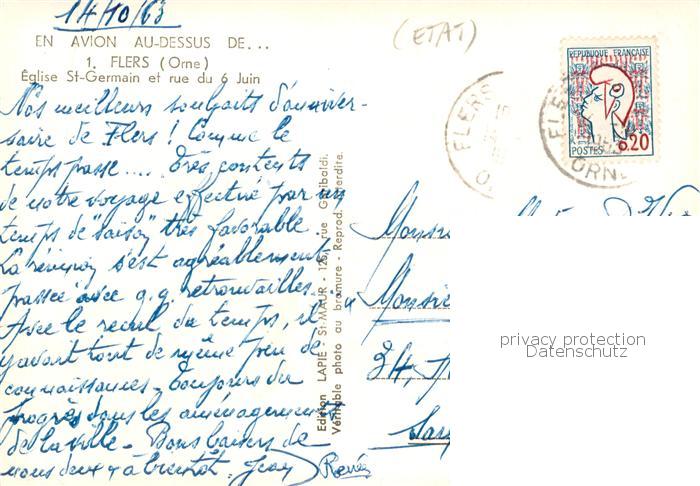 14/10/63
EN AVION AU-DESSUS DE...
1. FLERS (Orne)
Église St-Germain et rue du 6 Juin
(ETAT)
Nos meilleurs souhaits d'anniver-
saire de Flers ! Comme le
temps passe.... Très contents
de notre voyage effectué par un
temps de "saison" très favorable.
La réunion s'est agréablement
passée avec q.q. retrouvailles.
Avec le recul du temps, il
y avait tout de même peu de
connaissances - Toujours du
progrès dans les aménagements
de la ville - Bons baisers de
nous deux & à bientôt. Jean Renée
Edition LAPIE - St-MAUR - 125, rue Garibaldi.
Véritable photo au bromure - Reprod. interdite.
FLERS
FLERS
ORNE
REPUBLIQUE FRANÇAISE
POSTES 0.20
Monsieur
Monsie
34,
privacy protection
Datenschutz